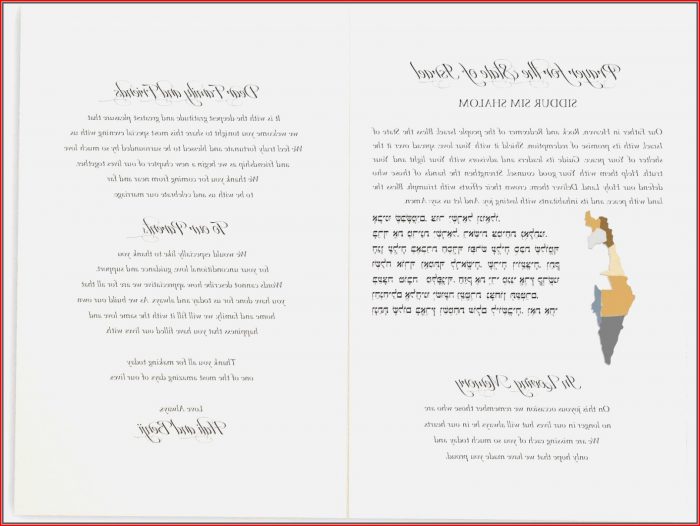 Prayer for the State of Israel
SIDDUR SIM SHALOM
Our father in Heaven, Rock and Redeemer of the people Israel; Bless the State of
Israel with its promise of redemption. Shield it with Your love; spread over it the
shelter of Your peace. Guide its leaders and advisors with Your light and Your
truth. Help them with Your good counsel. Strengthen the hands of those who
defend our Holy Land. Deliver them; crown their efforts with triumph. Bless the
land with peace and its inhabitants with lasting joy. And let us say: Amen.
אבינו שבשמים, צור ישראל וגואלו,
ברך את מדינת ישראל, ראשית צמיחת גאולתנו.
הגן עליה באברת חסדך ופרוש עליה סכת שלומך
ושלח אורך ואמתך לראשיה, שריה ויועציה,
בעצה טובה מלפניך. חזק את ידי מגני ארץ קדשנו
והנחילם אלהינו ישועה ועטרת נצחון תעטרם.
ונתת שלום בארץ ושמחת עולם ליושביה, ונאמר אמן
In Loving Memory
On this joyous occasion we remember those who are
no longer in our lives but will always be in our hearts
We are missing each of you so much today and
only hope that we have made you proud.
Dear Family and Friends
It is with the deepest gratitude and greatest pleasure that
we welcome you tonight to share this most special evening with us
We feel truly fortunate and blessed to be surrounded by so much love
and friendship as we begin a new chapter of our lives together.
We thank you for coming from near and far
to be with us and celebrate our marriage.
To our Parents
We would especially like to thank you
for your unconditional love, guidance and support
Words cannot describe how appreciative we are for all that
you have done for us today and always. As we build our own
home and family, we will fill it with the same love and
happiness that you have filled our lives with
Thank you all for making today
one of the most amazing days of our lives
Love Always,
Hali and Benji